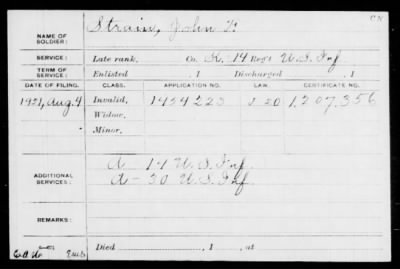 C N
NAME OF SOLDIER: Strain, John F.
SERVICE: Late rank, Co. K, 14 Reg't U.S. Inf
TERM OF SERVICE: Enlisted , 1 Discharged , 1
DATE OF FILING. CLASS. APPLICATION NO. LAW. CERTIFICATE NO.
1921, Aug. 4 Invalid, 1454223 J 20 1,207,356
Widow,
Minor,
A - 14 U.S. Inf.
ADDITIONAL SERVICES: A - 30 U.S. Inf.
REMARKS:
Died , 1 , at